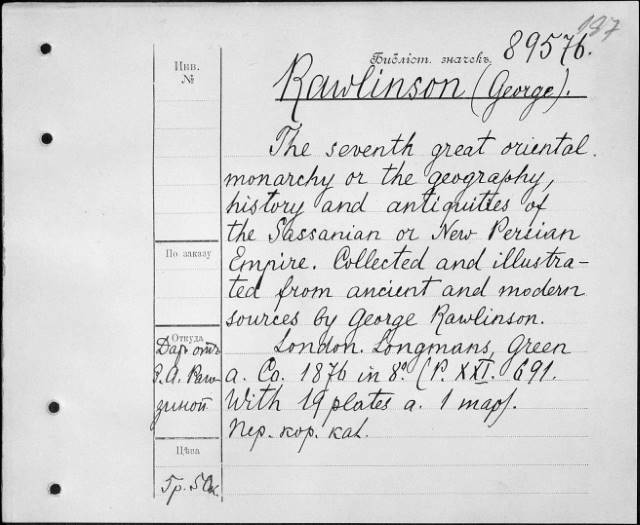 187
Библіот. значекъ. 89576.
Инв.
№
Rawlinson (George).
The seventh great oriental
monarchy or the geography,
history and antiquities of
the Sassanian or New Persian
Empire. Collected and illustra-
ted from ancient and modern
sources by George Rawlinson.
London. Longmans, Green
a. Co. 1876 in 8º. (P. XXI. 691.
With 19 plates a. 1 map).
Пер. кор. каl.
По заказу
Откуда
Даръ отъ
Р. А. Рав-
зиной
Цѣна
5р. 50к.